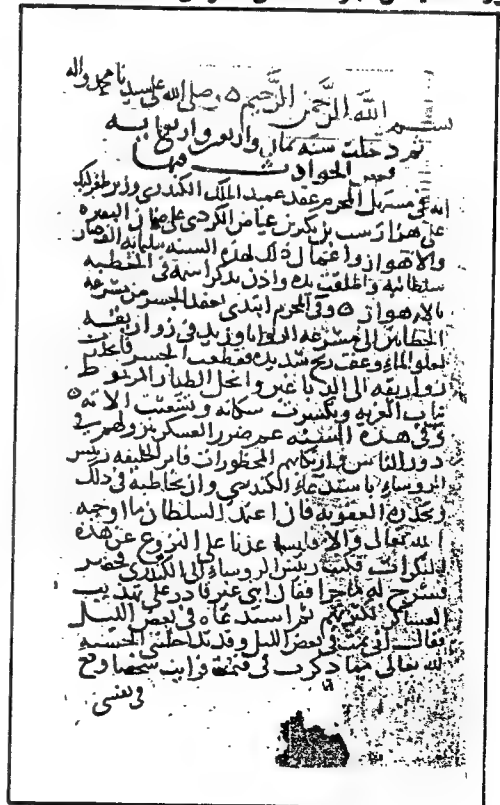 بسم الله الرحمن الرحيم ه صلى الله على سيدنا محمد واله
ثم دخلت سنه ثمان واربعين واربعمايه
فمن الحوادث فيها
انه في مستهل المحرم عقد عميد الملك الكندري وزير طغرلبك
على هزارسب بن بنكير بن عياض الكردي على ضمان البصره
والاهواز واعمال ذلك لهذه السنه بثلثمايه الف دينار
سلطانيه واطلقت يده واذن بذكر اسمه في الخطبه
بالاهواز ه وفي المحرم ابتدى بعقد الجسر من مشرعه
الحطابين الى مشرعه الروايا وزيد في زواريقه
لعلو الماء وعصفت ريح شديده فقطعت الجسر فانحدرت
زواريقه الى الدباغين وانحل الطيار المربوط
بباب الغربه وتكسرت سكانه وتشعثت الاته ه
وفي هذه السنه عم ضرر العسكر بنزولهم في
دور الناس وارتكابهم المحظورات فامر الخليفه رئيس
الروساء باستدعاء الكندري وان يخاطبه في ذلك
ويحذره العقوبه فان اعتمد السلطان ما اوجبه
الله تعالى والا فليساعدنا على النزوح عن هذه
المنكرات فكتب رئيس الروساء الى الكندري فحضر
فشرح له ما جرا فقال انني غير قادر على تهذيب
العساكر لكثرتهم ثم استدعاه في بعض الليل
فقال اني نمت في بعض الليل وقد تداخلني الخشيه
لله تعالى مما ذكرت في فرايت شخصا وقع
في نفسي